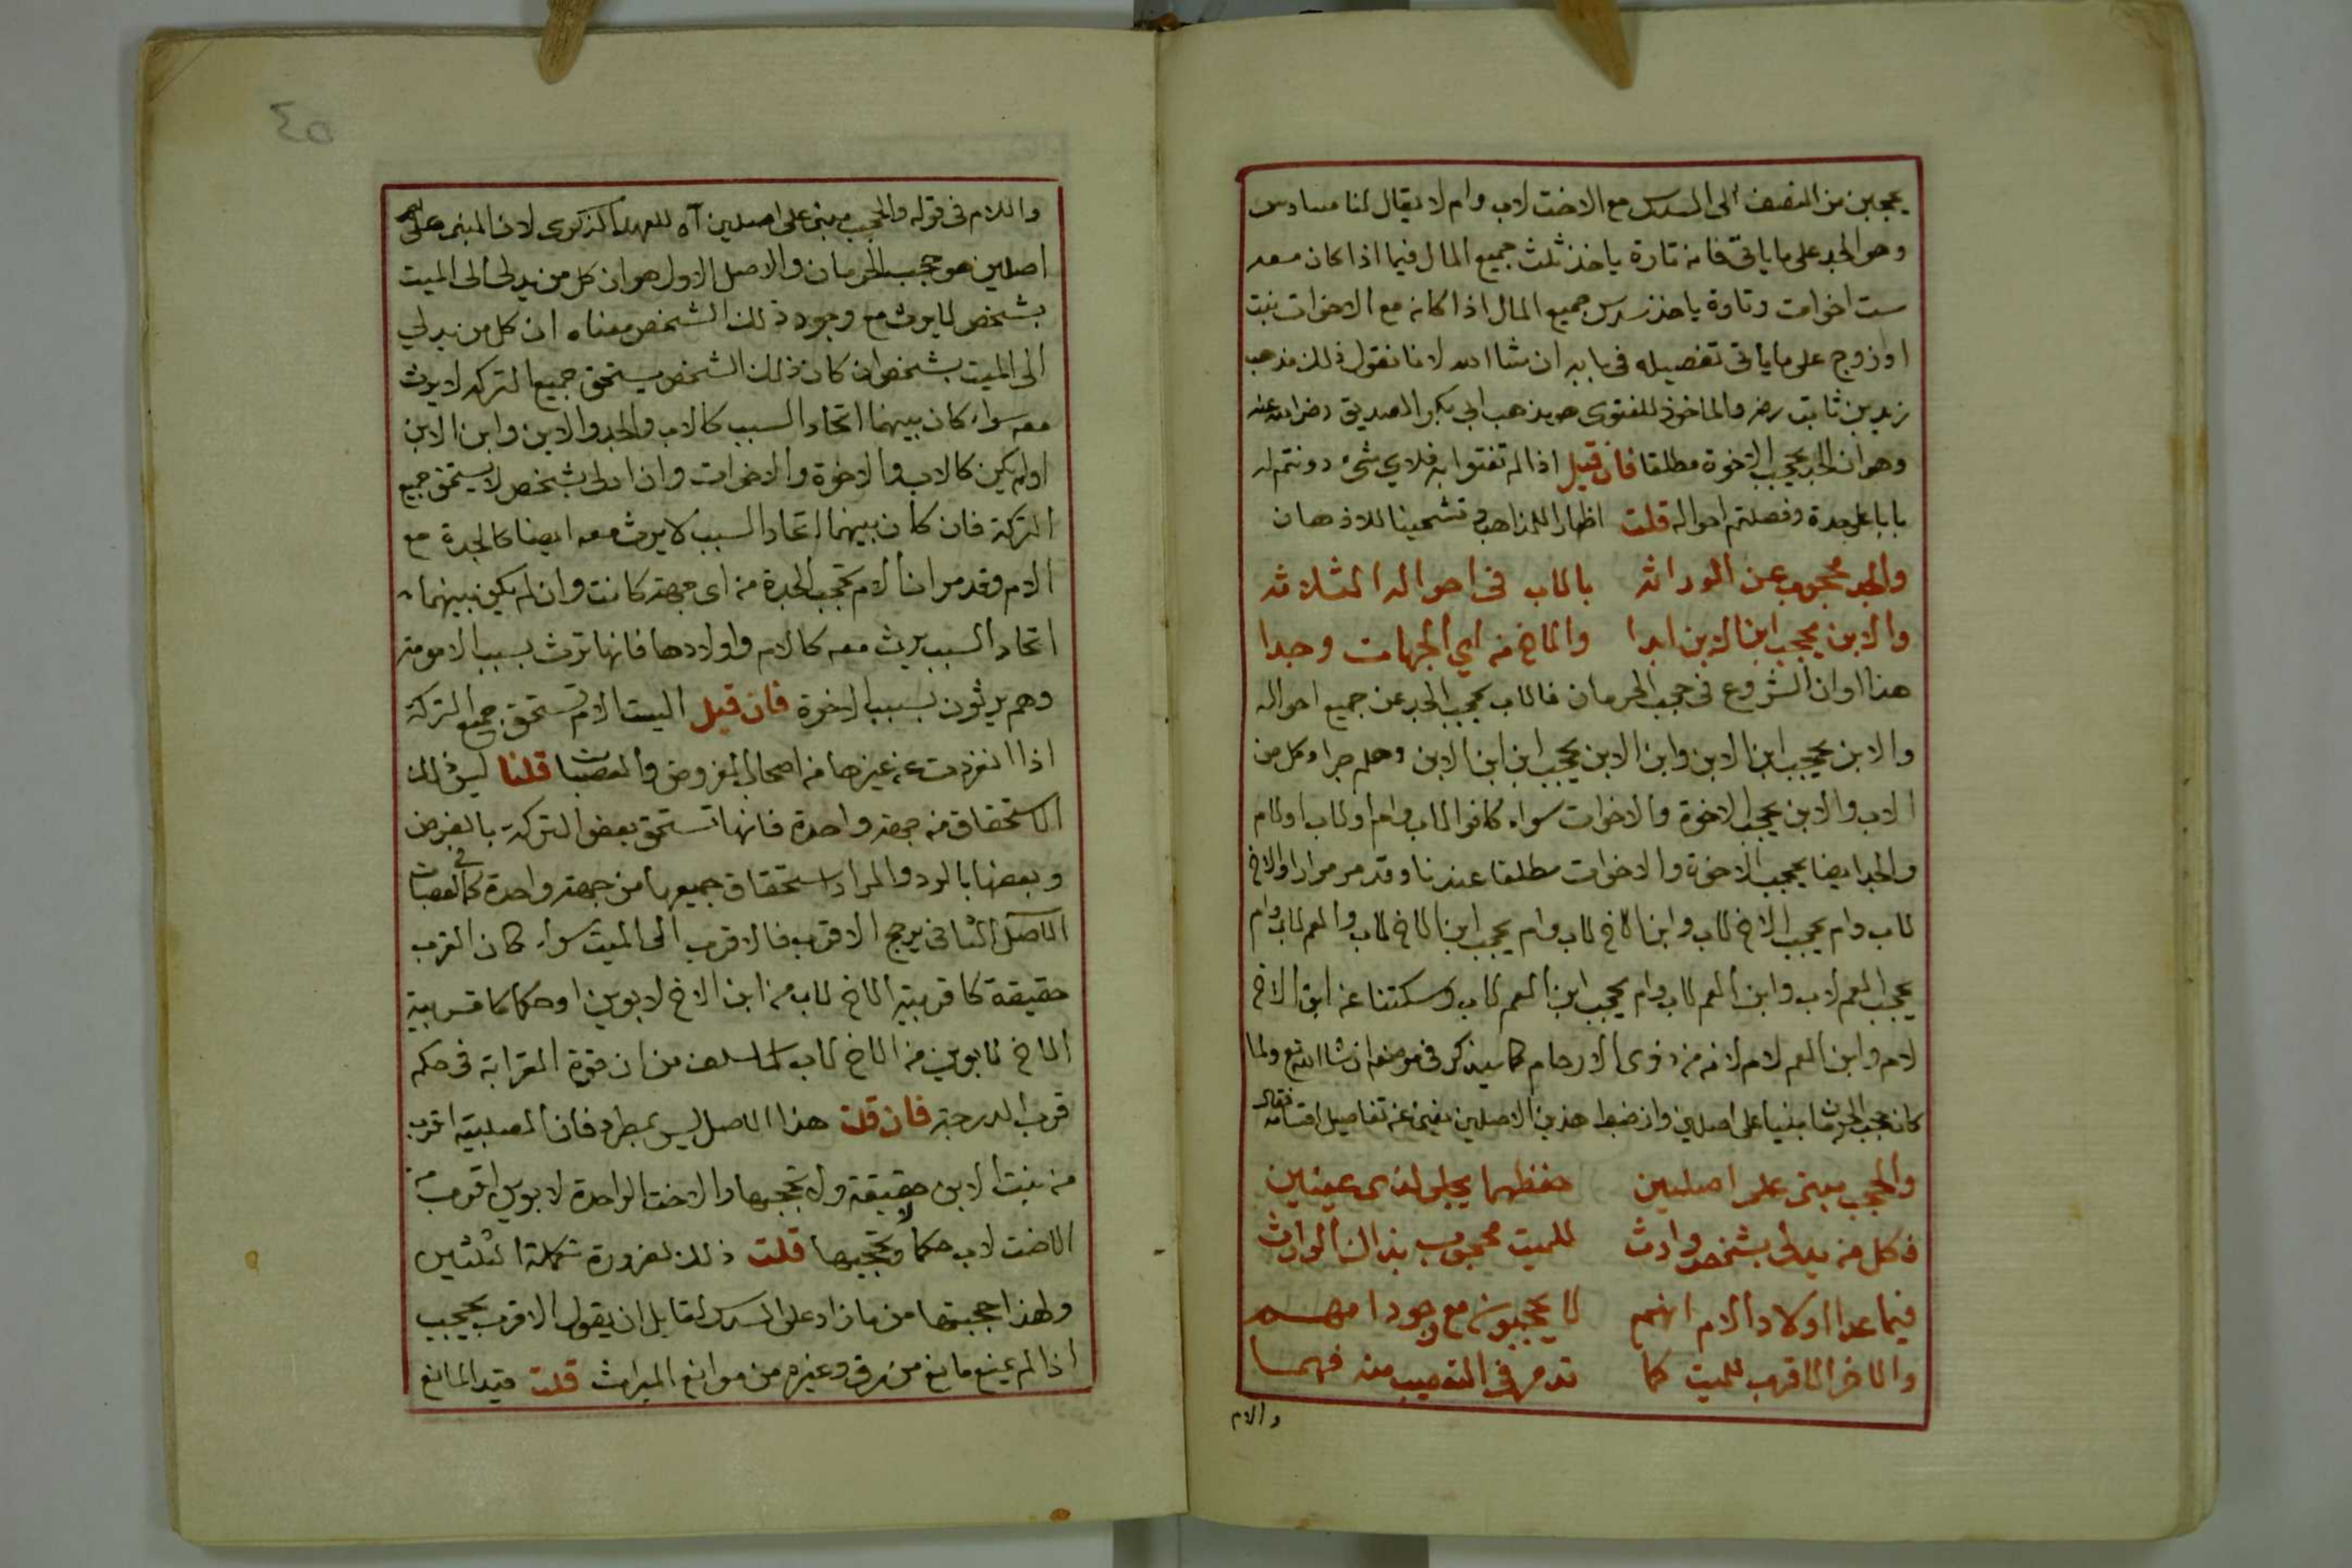 يحجبن من النصف الى السدس مع الاخت لاب وام لا يقال لنا سادس
وهو الجد على ما ياتى فانه تارة ياخذ ثلث جميع المال فيما اذا كان معه
ست اخوات وتارة ياخذ سدس جميع المال اذا كانه مع الاخوات بنت
او زوج على ما ياتى تفصيله فى بابه ان شا الله لانا نقول ذلك مذهب
زيد بن ثابت رضه والماخوذ للفتوى هو مذهب ابى بكر الصديق رضى الله عنه
وهو ان الجد يحجب الاخوة مطلقا فان قيل اذا لم تفتوا به فلاي شىء دونتم له
بابا على حدة وفصلتم احواله قلت اظهارا للمذاهب وتشحيذا للاذهان
والجد محجوب عن الوراثه بالاب فى احواله الثلاثه
والابن يحجب ابن الابن ابدا والاخ من اي الجهات وجدا
هذا اوان الشروع فى حجب الحرمان فالاب يحجب الجد عن جميع احواله
والابن يحجب ابن الابن وابن الابن يحجب ابن ابن الابن وهلم جرا وكل من
الاب والابن يحجب الاخوة والاخوات سواء كانوا لاب وام او لاب او لام
والجد ايضا يحجب الاخوة والاخوات مطلقا عندنا وقد مر مرارا والاخ
لاب وام يحجب الاخ لاب وابن الاخ لاب وام يحجب ابن الاخ لاب والعم لاب وام
يحجب العم لاب وابن العم لاب وام يحجب ابن العم لاب وسكتنا عن ابن الاخ
لام وابن العم لام لانه من ذوى الارحام كما سيذكر فى موضعه ان شا الله تع ولما
كان حجب الحرمان مبنيا على اصلين وان ضبط هذين الاصلين يغنى عن تفاصيل اقسامه فقال
والحجب مبنى على اصلين حفظهما يجلو لذى عينين
فكل من يدلى بشخص وارث للميت محجوب بذاك الوارث
فيما عدا اولاد الام انهم لا يحجبون مع وجود امهم
والاخر الاقرب للميت كما قد مر فى التعصيب منه فهما
والام
واللام فى قوله والحجب مبنى على اصلين آه للعهد الذكرى لان المبنى على
اصلين هو حجب الحرمان والاصل الاول هو ان كل من يدلى الى الميت
بشخص لا يرث مع وجود ذلك الشخص معناه ان كل من يدلي
الى الميت بشخص ان كان ذلك الشخص يستحق جميع التركه لا يرث
معه سواء كان بينهما اتحاد السبب كالاب والجد والابن وابن الابن
او لم يكن كالاب والاخوة والاخوات وان ادلى بشخص لا يستحق جميع
التركة فان كان بينهما اتحاد السبب لا يرث معه ايضا كالجدة مع
الام وقد مر ان الام تحجب الجدة من اى جهة كانت وان لم يكن بينهما
اتحاد السبب يرث معه كالام واولادها فانها ترث بسبب الامومة
وهم يرثون بسبب الاخوة فان قيل اليست الام تستحق جميع التركة
اذا انفردت عن غيرها من اصحاب الفروض والعصبات قلنا ليس ذلك
الاستحقاق من جهة واحدة فانها تستحق بعض التركة بالفرض
وبعضها بالرد والمراد استحقاق جميعها من جهة واحدة كما فى العصبات
الاصل الثانى يرجح الاقرب فالاقرب الى الميت سواء كان القرب
حقيقة كاقربية الاخ لاب من ابن الاخ لابوين او حكما كاقربية
الاخ لابوين من الاخ لاب لما سلف من ان قوة القرابة فى حكم
قرب الدرجة فان قلت هذا الاصل ليس بمطرد فان الصلبية اقرب
من بنت الابن حقيقة ولا تحجبها والاخت الواحدة لابوين اقرب من
الاخت لاب حكما ولا تحجبها قلت ذلك لضرورة تكملة الثلثين
ولهذا حجبتها من ما زاد على السدس لقابل ان يقول الاقرب يحجب
اذا لم يمنع مانع من رق وغيره من موانع الميراث قلت قيد المانع